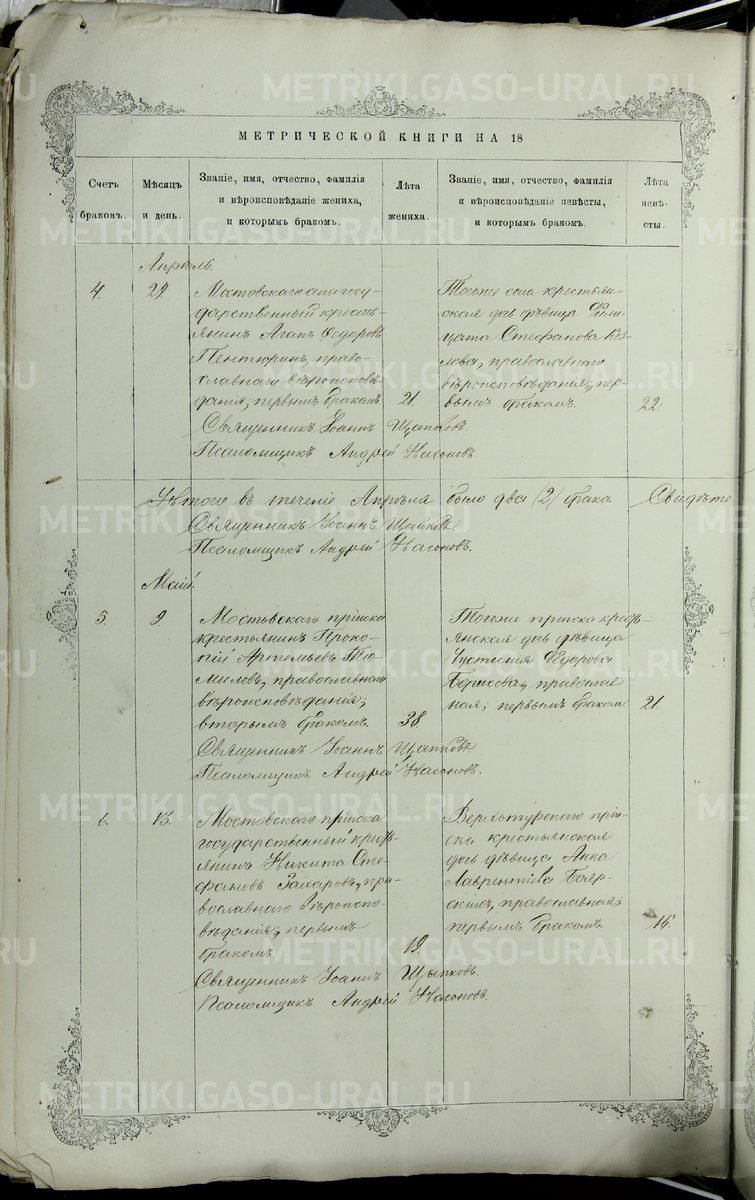 МЕТРИЧЕСКОЙ КНИГИ НА 18
Счетъ браковъ.
Мѣсяцъ и день.
Званіе, имя, отчество, фамилія
и вѣроисповѣданіе жениха,
и которымъ бракомъ.
Лѣта жениха.
Званіе, имя, отчество, фамилія
и вѣроисповѣданіе невѣсты,
и которымъ бракомъ.
Лѣта невѣсты.
Апрѣль.
4.
29.
Мостовскаго села госу-
дарственный кресть-
янинъ Агапъ Ѳедоровъ
Пентюринъ, право-
славнаго вѣроисповѣ-
данія, первымъ бракомъ
21.
Тогоже села крестьян-
ская дочь дѣвица
Стефанова Коз-
лова, православнаго
вѣроисповѣданія, пер-
вымъ бракомъ.
22.
Священникъ Іоаннъ Щапковъ
Псаломщикъ Андрей Насоновъ.
Итого въ теченіе Апрѣля было два (2) брака. Свидѣте
Священникъ Іоаннъ Щапковъ.
Псаломщикъ Андрей Насоновъ.
Май.
5.
9.
Мостовскаго пріиска
крестьянинъ Проко-
пій Артемьевъ То-
миловъ, православнаго
вѣроисповѣданія,
вторымъ бракомъ.
38.
Тогоже пріиска кресть-
янская дочь дѣвица
Іустинія Ѳедорова
Борисова, православ
ная, первымъ бракомъ
21.
Священникъ Іоаннъ Щапковъ.
Псаломщикъ Андрей Насоновъ.
6.
13.
Мостовскаго пріиска
государственный кресть-
янинъ Никита Сте-
фановъ Захаровъ, пра-
вославнаго вѣроиспо-
вѣданія, первымъ
бракомъ
19.
Верхотурскаго прі-
ска крестьянская
дочь дѣвица Анна
Лаврентіева Бояр-
скихъ, православная,
первымъ бракомъ.
16.
Священникъ Іоаннъ Щапковъ.
Псаломщикъ Андрей Насоновъ.
METRIKI.GASO-URAL.RU